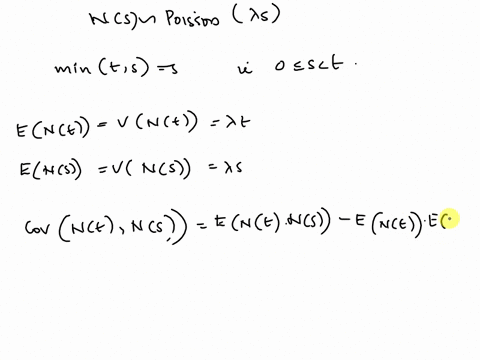 N(s) ~ Poisson (λs)
min (t, s) = s if 0 ≤ s < t .
E(N(t)) = V(N(t)) = λt
E(N(s)) = V( N(s)) = λs
Cov (N(t), N(s)) = E (N(t) . N(s)) - E (N(t)) . E(